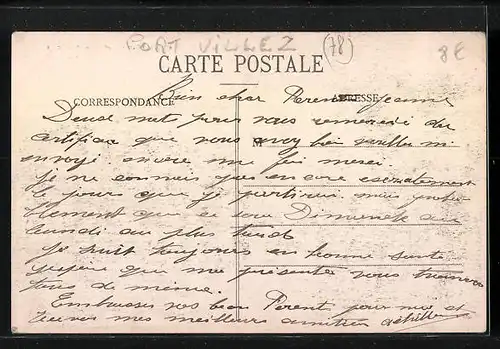 PORT VILLEZ (78) 8€
CARTE POSTALE
CORRESPONDANCE ADRESSE
Bien cher Parent Jeanne
Deux mot pour vous remercié du
que vous avoy bien voullu mi
envoyé encore une foi merci.
je ne connais pas encore exsactement
le jour que je partirai mais prob
blement que ce sera Dimanche au
lundi au plus tard
je suit toujours en bonne santé
jespere que ma présente vous trouvera
tous de même.
Embrasser vos bon Parent pour moi et
recevez mes meilleurs amitiés Achille